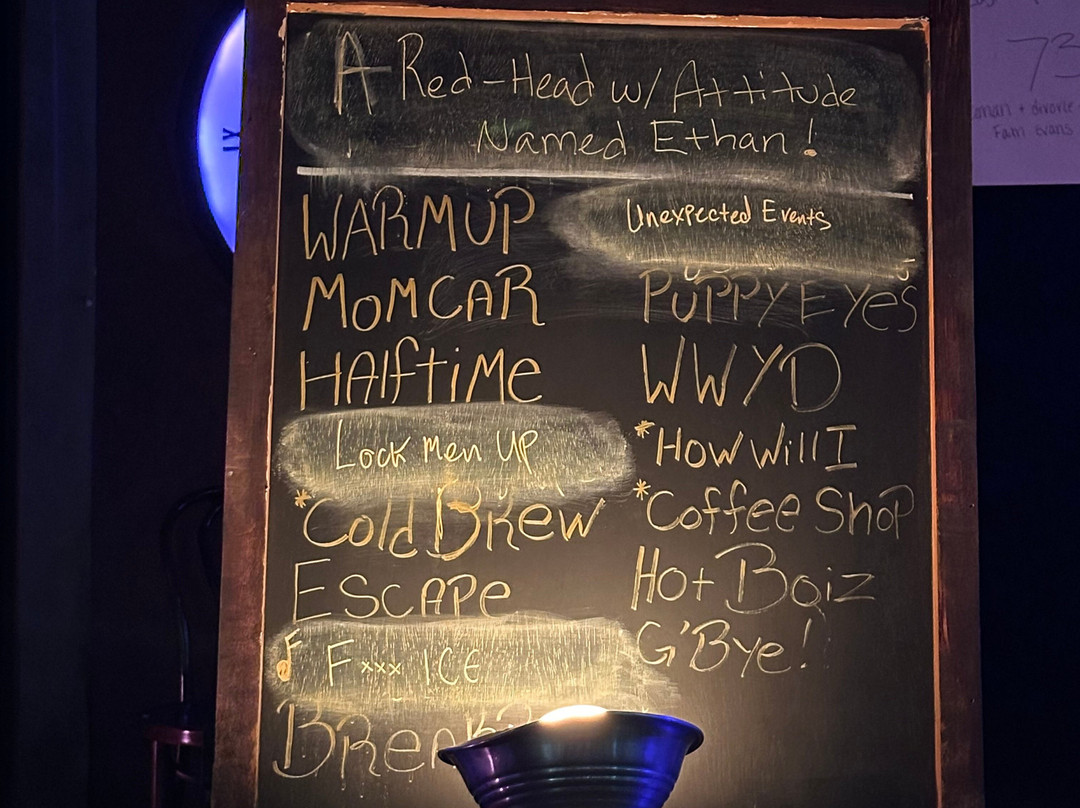 A Red-Head w/ Attitude
Named Ethan!
WARMUP
MOMCAR
HAlftiMe
Lock Men UP
*Cold Brew
EscAPe
F F××× ICE
Unexpected Events
PUPPY EYes
WWYD
*How Will I
*Coffee Shop
Hot Boiz
G'Bye!
IX
73
Fam evans